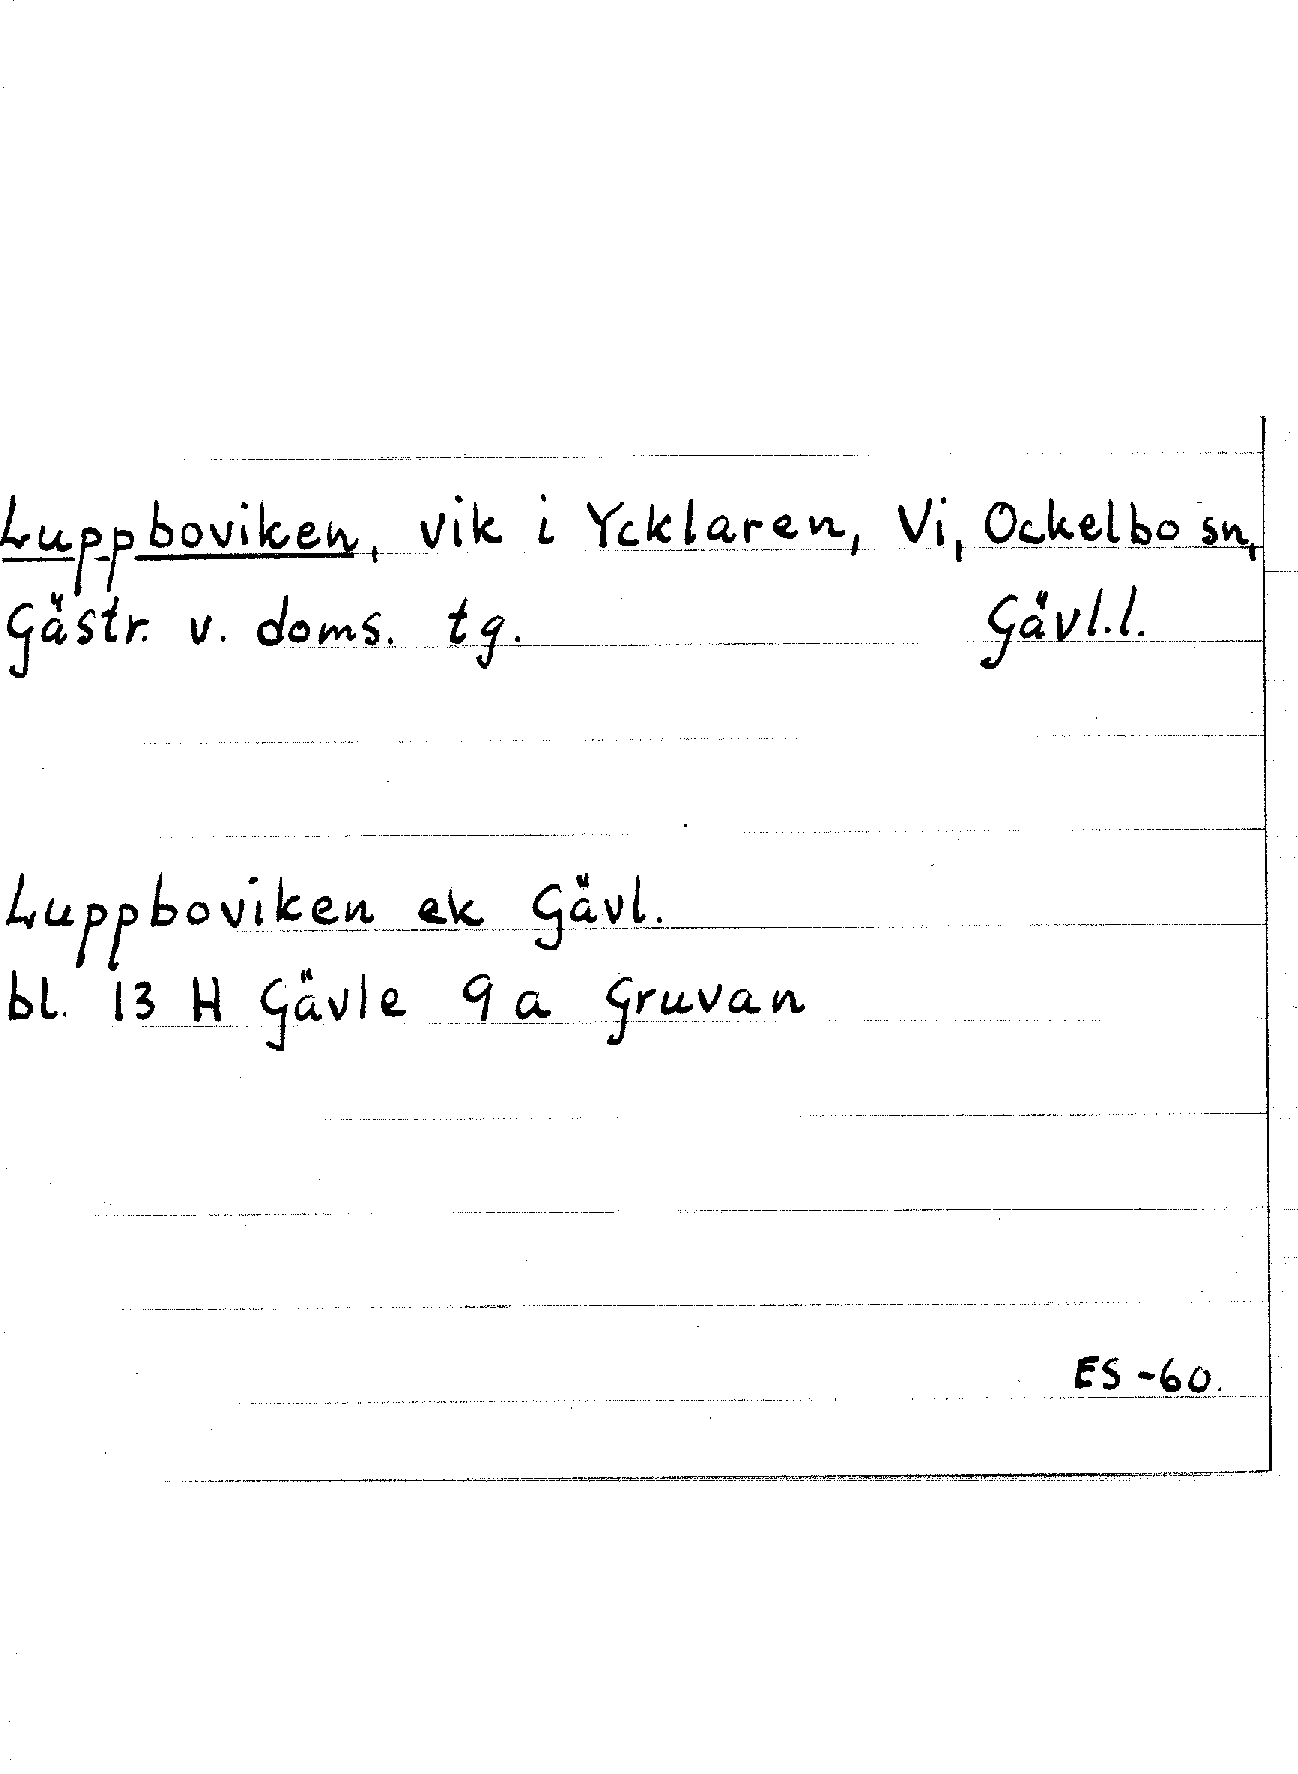 Luppboviken, vik i Ycklaren, Vi, Ockelbo sn,
Gästr. v. doms. tg. Gävl.l.
Luppboviken ek Gävl.
bl. 13 H Gävle 9 a Gruvan
ES -60.